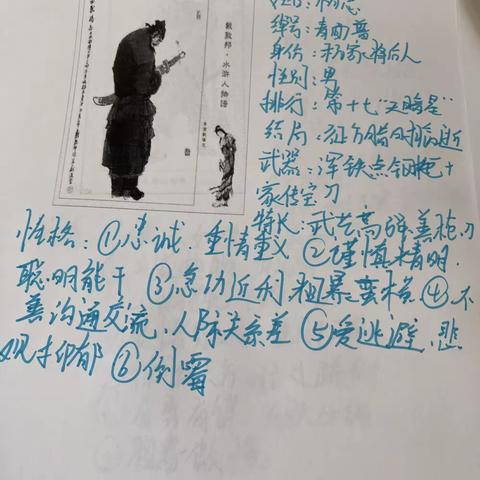 姓名：杨志
绰号：青面兽
身份：杨家将后人
性别：男
排行：第十七"天暗星"
结局：征方腊时病逝
武器：浑铁点钢枪+
家传宝刀
特长：武艺高强善枪刀
性格：①忠诚．重情重义 ②谨慎精明．
聪明能干 ③急功近利．粗暴蛮横．④不
善沟通交流．人际关系差 ⑤爱逃避．悲
观抑郁 ⑥倒霉
戴敦邦·水浒人物谱